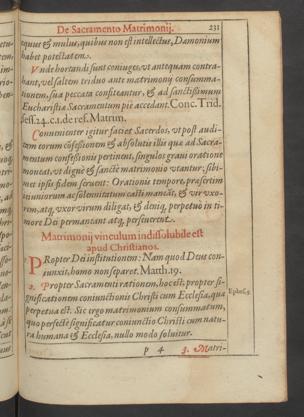 De Sacramento Matrimonij. 231
equus & mulus, quibus non est intellectus, Dæmonium
habet potestatem.
Vnde hortandi sunt coniuges, vt antequam contra-
hant, vel saltem triduo ante matrimonij consumma-
tionem, sua peccata confiteantur, & ad sanctissimum
Eucharistiæ Sacramentum piè accedant. Conc. Trid.
sess. 24. c. 1. de ref. Matrim.
Conuenienter igitur faciet Sacerdos, vt post audi-
tam eorum cōfessionem & absolutis illis quæ ad Sacra-
mentum confessionis pertinent, singulos graui oratione
moueat, vt dignè & sanctè matrimonio vtantur; sibi-
met ipsis fidem seruent: Orationis tempore, præsertim
ieiuniorum ac solennitatum casti maneāt, & vt vir vx-
orem, atq; vxor virum diligat, & deniq; perpetuò in ti-
more Dei permanant atq; perseuerent.
Matrimonij vinculum indissolubile est
apud Christianos.
PRopter Dei institutionem: Nam quod Deus con-
iunxit, homo non separet. Matth. 19.
2. Propter Sacramenti rationem, hoc est; propter si-
gnificationem coniunctionis Christi cum Ecclesia, quæ Ephes. 5.
perpetua est. Sic ergo matrimonium consummatum,
quo perfectè significatur coniunctio Christi cum natu-
ra humana & Ecclesia, nullo modo soluitur.
p 4 3. Matri-